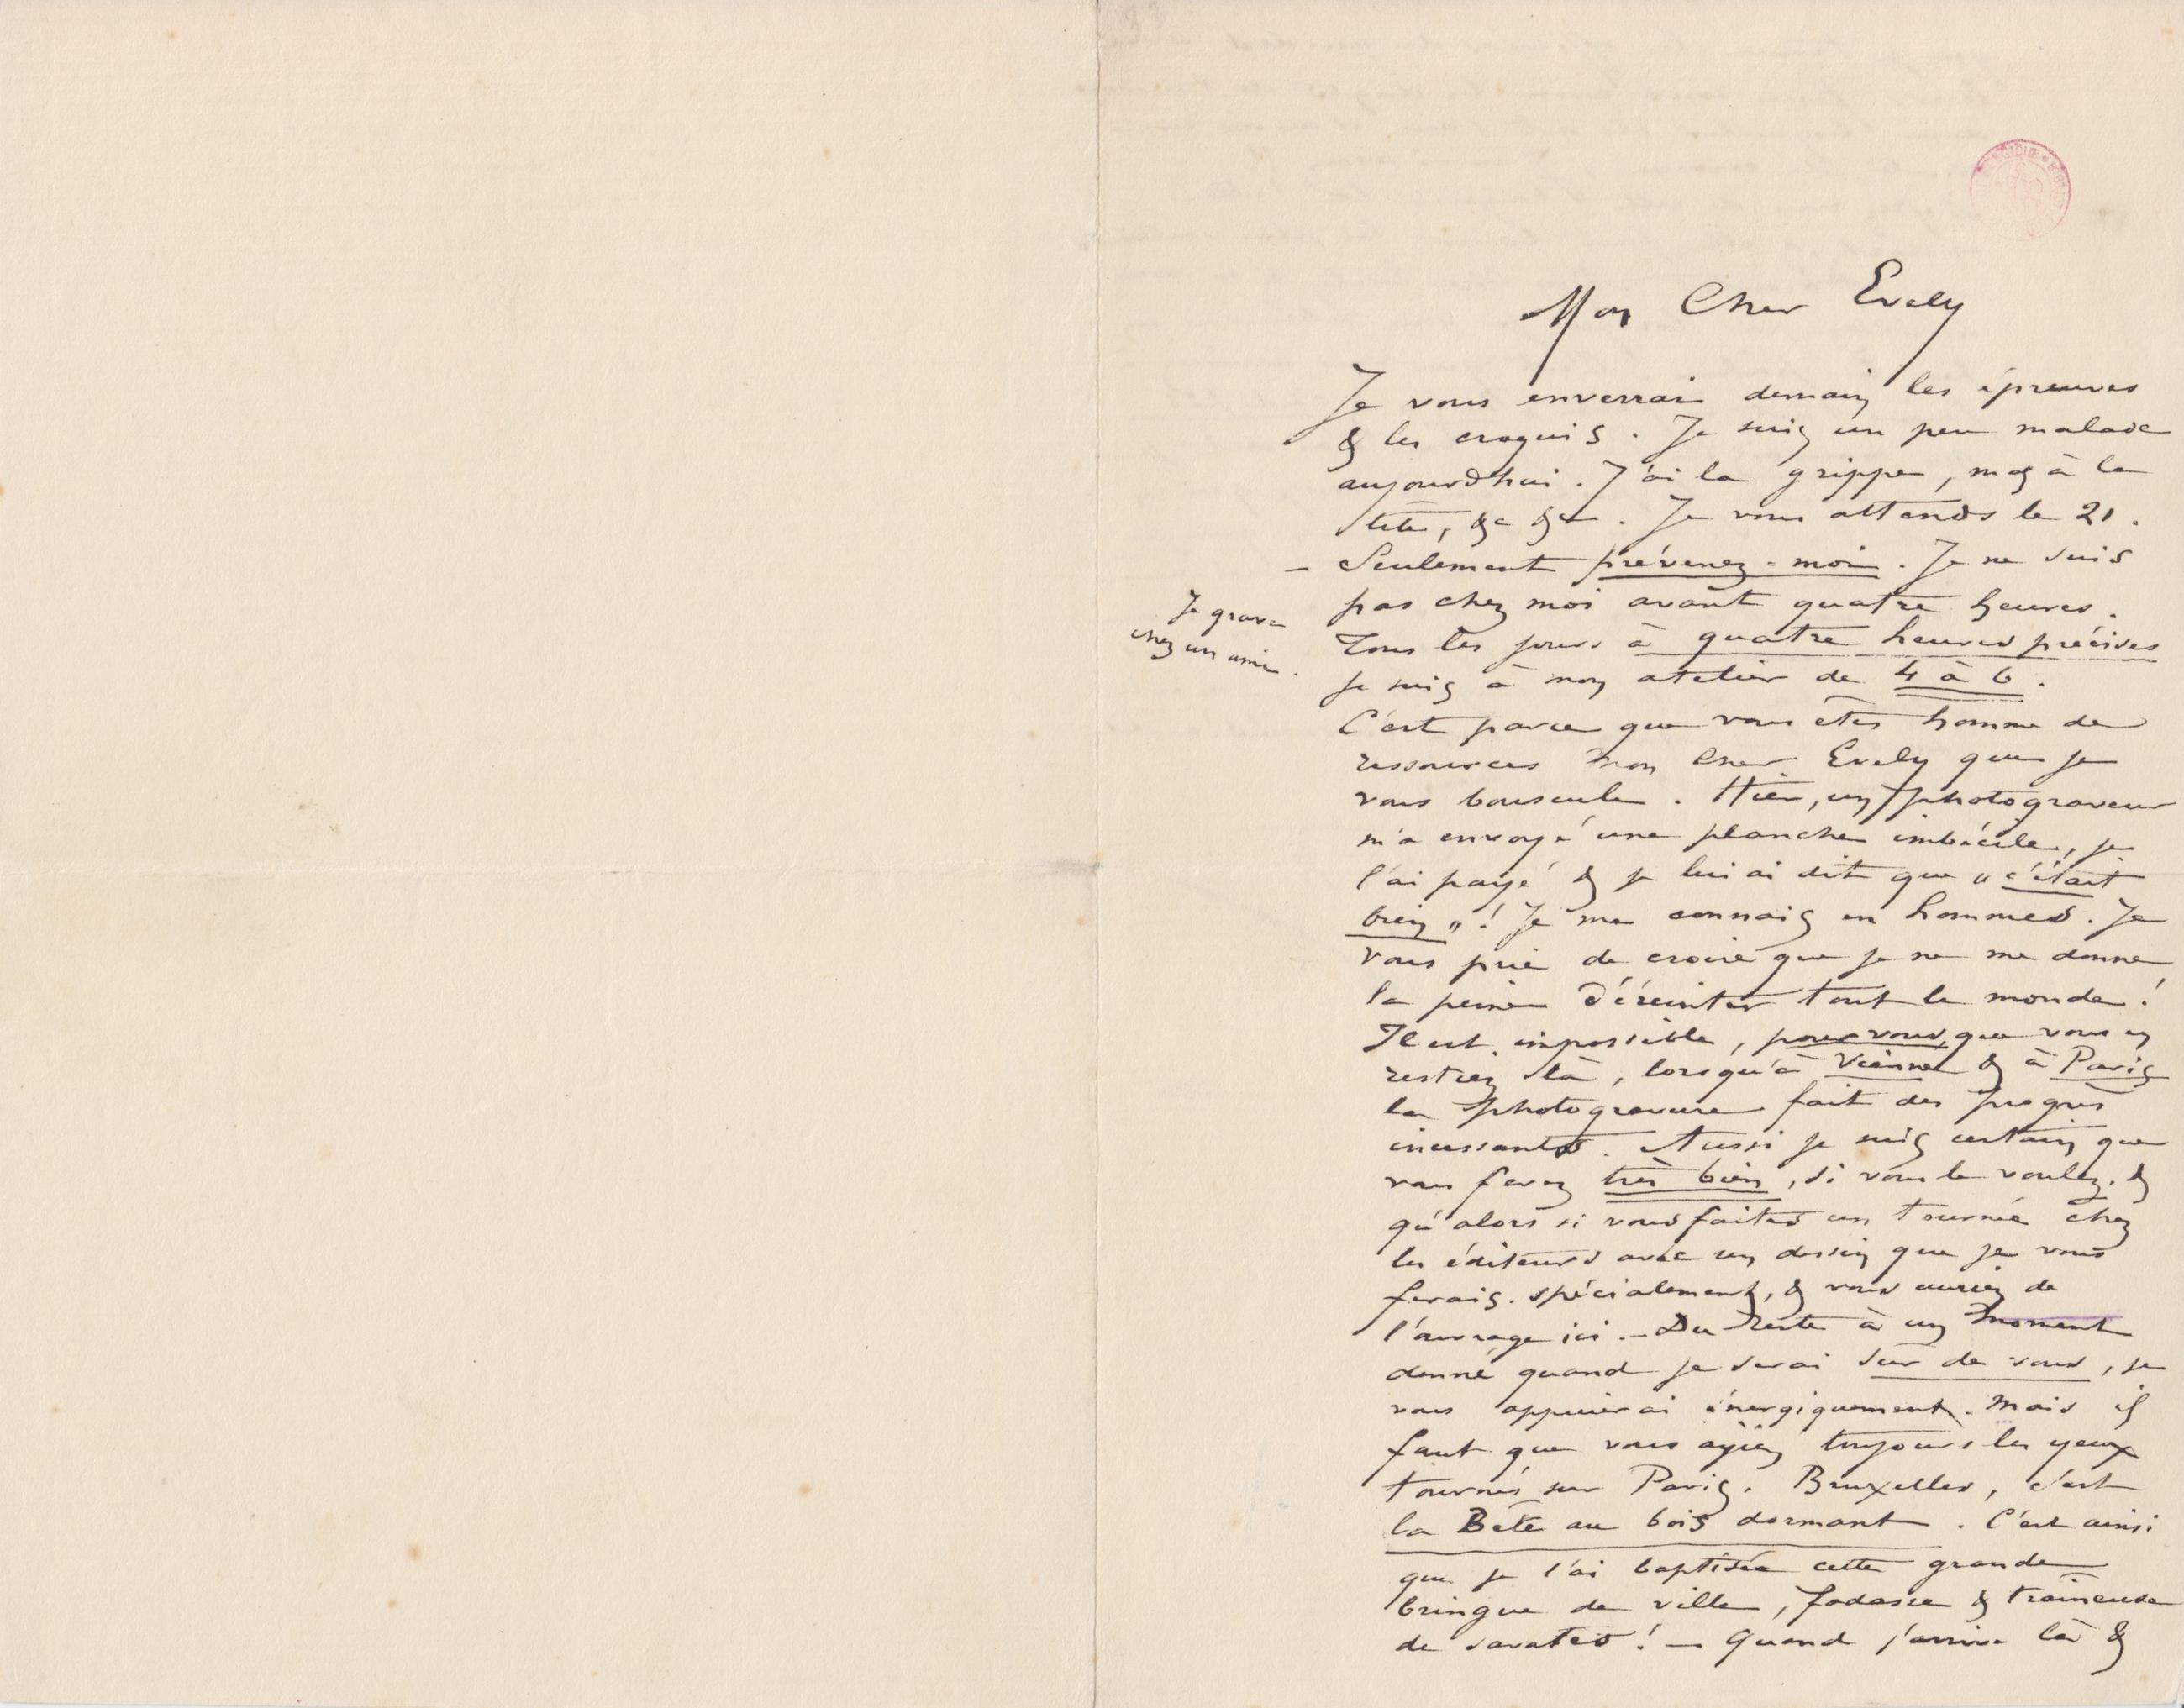 Mon Cher Evely
Je vous enverrai demain les épreuves
& les croquis. Je suis un peu malade
aujourdhui. J'ai la grippe, mal à la
tête, &c &c. Je vous attends le 21.
– Seulement prévenez-moi. Je ne suis
pas chez moi avant quatre heures.
Tous les jours à quatre heures précises
je suis à mon atelier de 4 à 6.
Je grave
chez un ami.
C'est parce que vous êtes homme de
ressources mon cher Evely que je
vous bouscule. Hier, un photograveur
m'a envoyé une planche imbécile, je
l'ai payé & je lui ai dit que "c'était
bien"! Je me connais en hommes. Je
vous prie de croire que je ne me donne
la peine d'éreinter tout le monde!
Il est impossible, pour vous, que vous en
restiez là, lorsqu'à Vienne & à Paris
la photogravure fait des progrès
incessants. Aussi je suis certain que
vous ferez très bien, si vous le voulez. &
qu'alors si vous faites un tournée chez
les éditeurs avec un dessin que je vous
ferais. spécialement, & vous auriez de
l'ouvrage ici. – Du reste à un moment
donné quand je serai sûr de vous, je
vous appuierai énergiquement. Mais il
faut que vous ayiez toujours les yeux
tournés sur Paris. Bruxelles, c'est
la Bête au bois dormant. C'est ainsi
que je l'ai baptisée cette grande
bringue de ville, fadasse & traîneuse
de savates! – Quand j'arrive là &